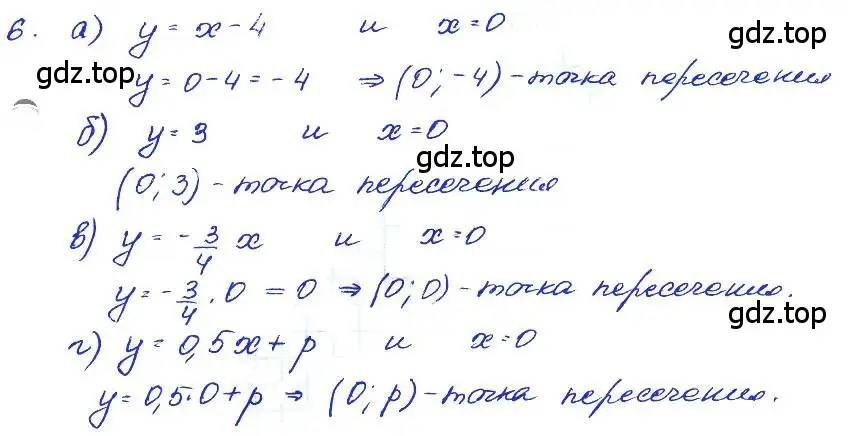 6. а) y = x - 4 и x = 0
gdz.top
gdz.top y = 0 - 4 = -4 ⇒ (0; -4) - точка пересечения
б) y = 3 и x = 0
gdz.top
(0; 3) - точка пересечения
в) y = -3/4 x и x = 0
gdz.top
y = -3/4 · 0 = 0 ⇒ (0; 0) - точка пересечения.
г) y = 0,5x + p и x = 0
gdz.top
y = 0,5·0 + p ⇒ (0; p) - точка пересечения.